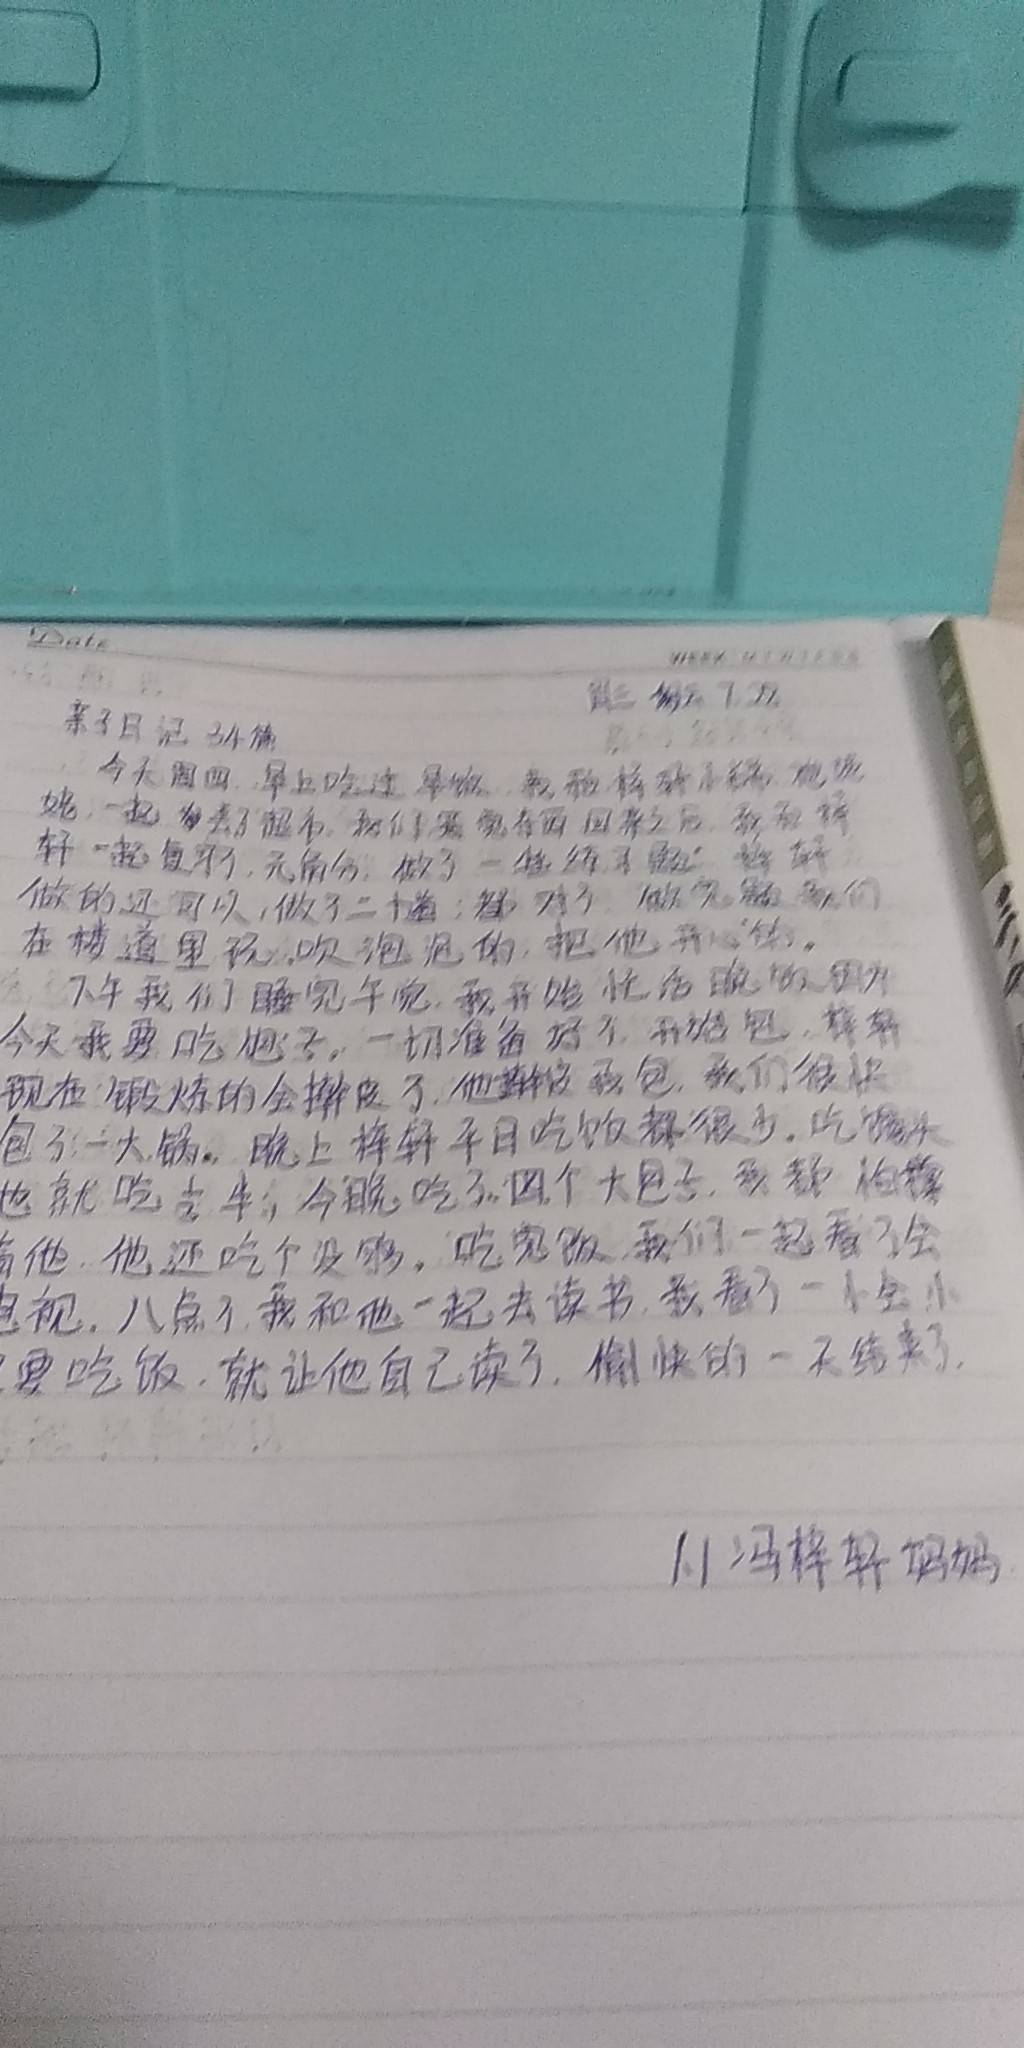 Date
WEEK M T W T F S S
7.22
亲子日记 34篇
今天周四,早上吃过早饭,我和梓轩
一起去了超市,我们买完东西回来之后,我和梓
轩一起复习了,元角分,做了一些练习题,梓轩
做的还可以,做了二十道,都对了,做完题我们
在楼道里玩,吹泡泡的,把他开心的。
下午我们睡完午觉,我开始忙活晚饭,因为
今天我要吃包子。一切准备好了,开始包,梓轩
现在锻炼的会擀皮了,他擀皮我包,我们很快
包了一大锅。晚上梓轩平日吃饭都很少,吃馒头
也就吃去半,今晚吃了四个大包子,我都怕撑
着他,他还吃个没够。吃完饭我们一起看了会
电视。八点了,我和他一起去读书,我看了一小会,小
要吃饭,就让他自己读了,愉快的一天结束了。
1.1 冯梓轩妈妈